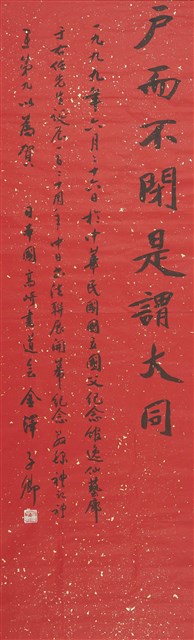 户而不閉是謂大同
一九九九年六月二十六日於中華民國國立國父紀念館逸仙藝廊
于右任先生誕辰一百二十周年中日書法聯展開幕紀念
第九以為賀 日本國高崎書道會 金澤子卿